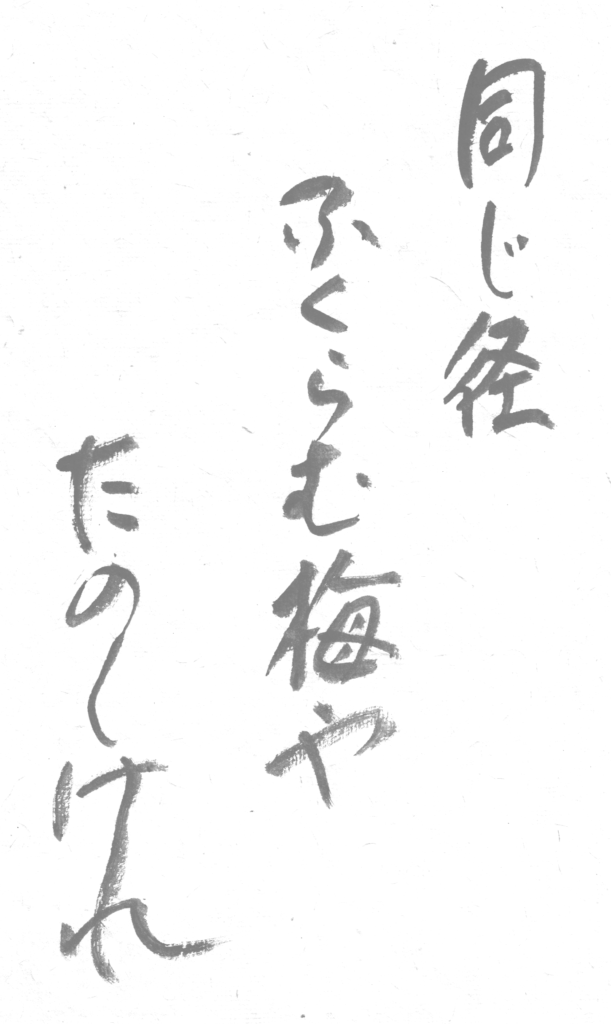 同じ径
ふくらむ梅や
たのしけれ